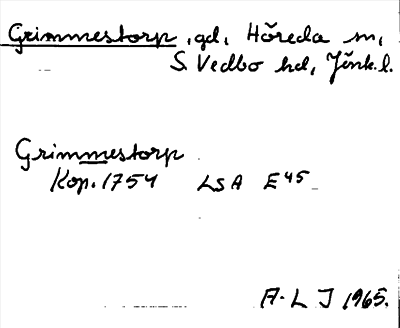 Grimmestorp, gd, Höreda sn,
S. Vedbo hd, Jönk. l.
Grimmestorp
Kop. 1754 LSA E45
A. L J 1965.